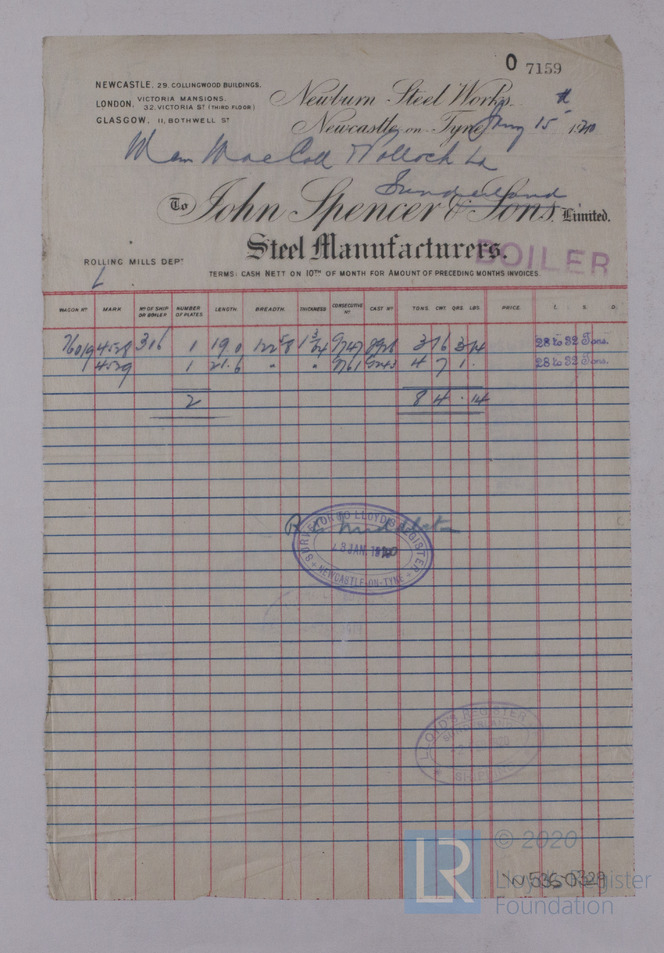 O 7159
NEWCASTLE, 29, COLLINGWOOD BUILDINGS.
LONDON, VICTORIA MANSIONS,
32, VICTORIA ST (THIRD FLOOR)
GLASGOW, 11, BOTHWELL ST
Newburn Steel Works
Newcastle on Tyne 15th 1920
MacColl Pollock Ld
Sunderland
To John Spencer & Sons Limited.
Steel Manufacturers.
BOILER
ROLLING MILLS DEPT
L
TERMS: CASH NETT ON 10TH OF MONTH FOR AMOUNT OF PRECEDING MONTHS INVOICES
WAGON NO MARK NO OF SHIP OR BOILER NUMBER OF PLATES LENGTH BREADTH THICKNESS CONSECUTIVE NO CAST NO TONS CWT QRS LBS PRICE £ S D
4528 306 1 19.0 3 16 3 14 28 to 32 Tons.
4529 1 21.6 " " 4 7 1 . 28 to 32 Tons.
2 8 4 . 14
SURVEYOR TO LLOYD'S REGISTER
JAN. 1920
NEWCASTLE-ON-TYNE
LLOYD'S REGISTER
SHIPPING
W536-0329
LR © 2020
Lloyd's Register
Foundation